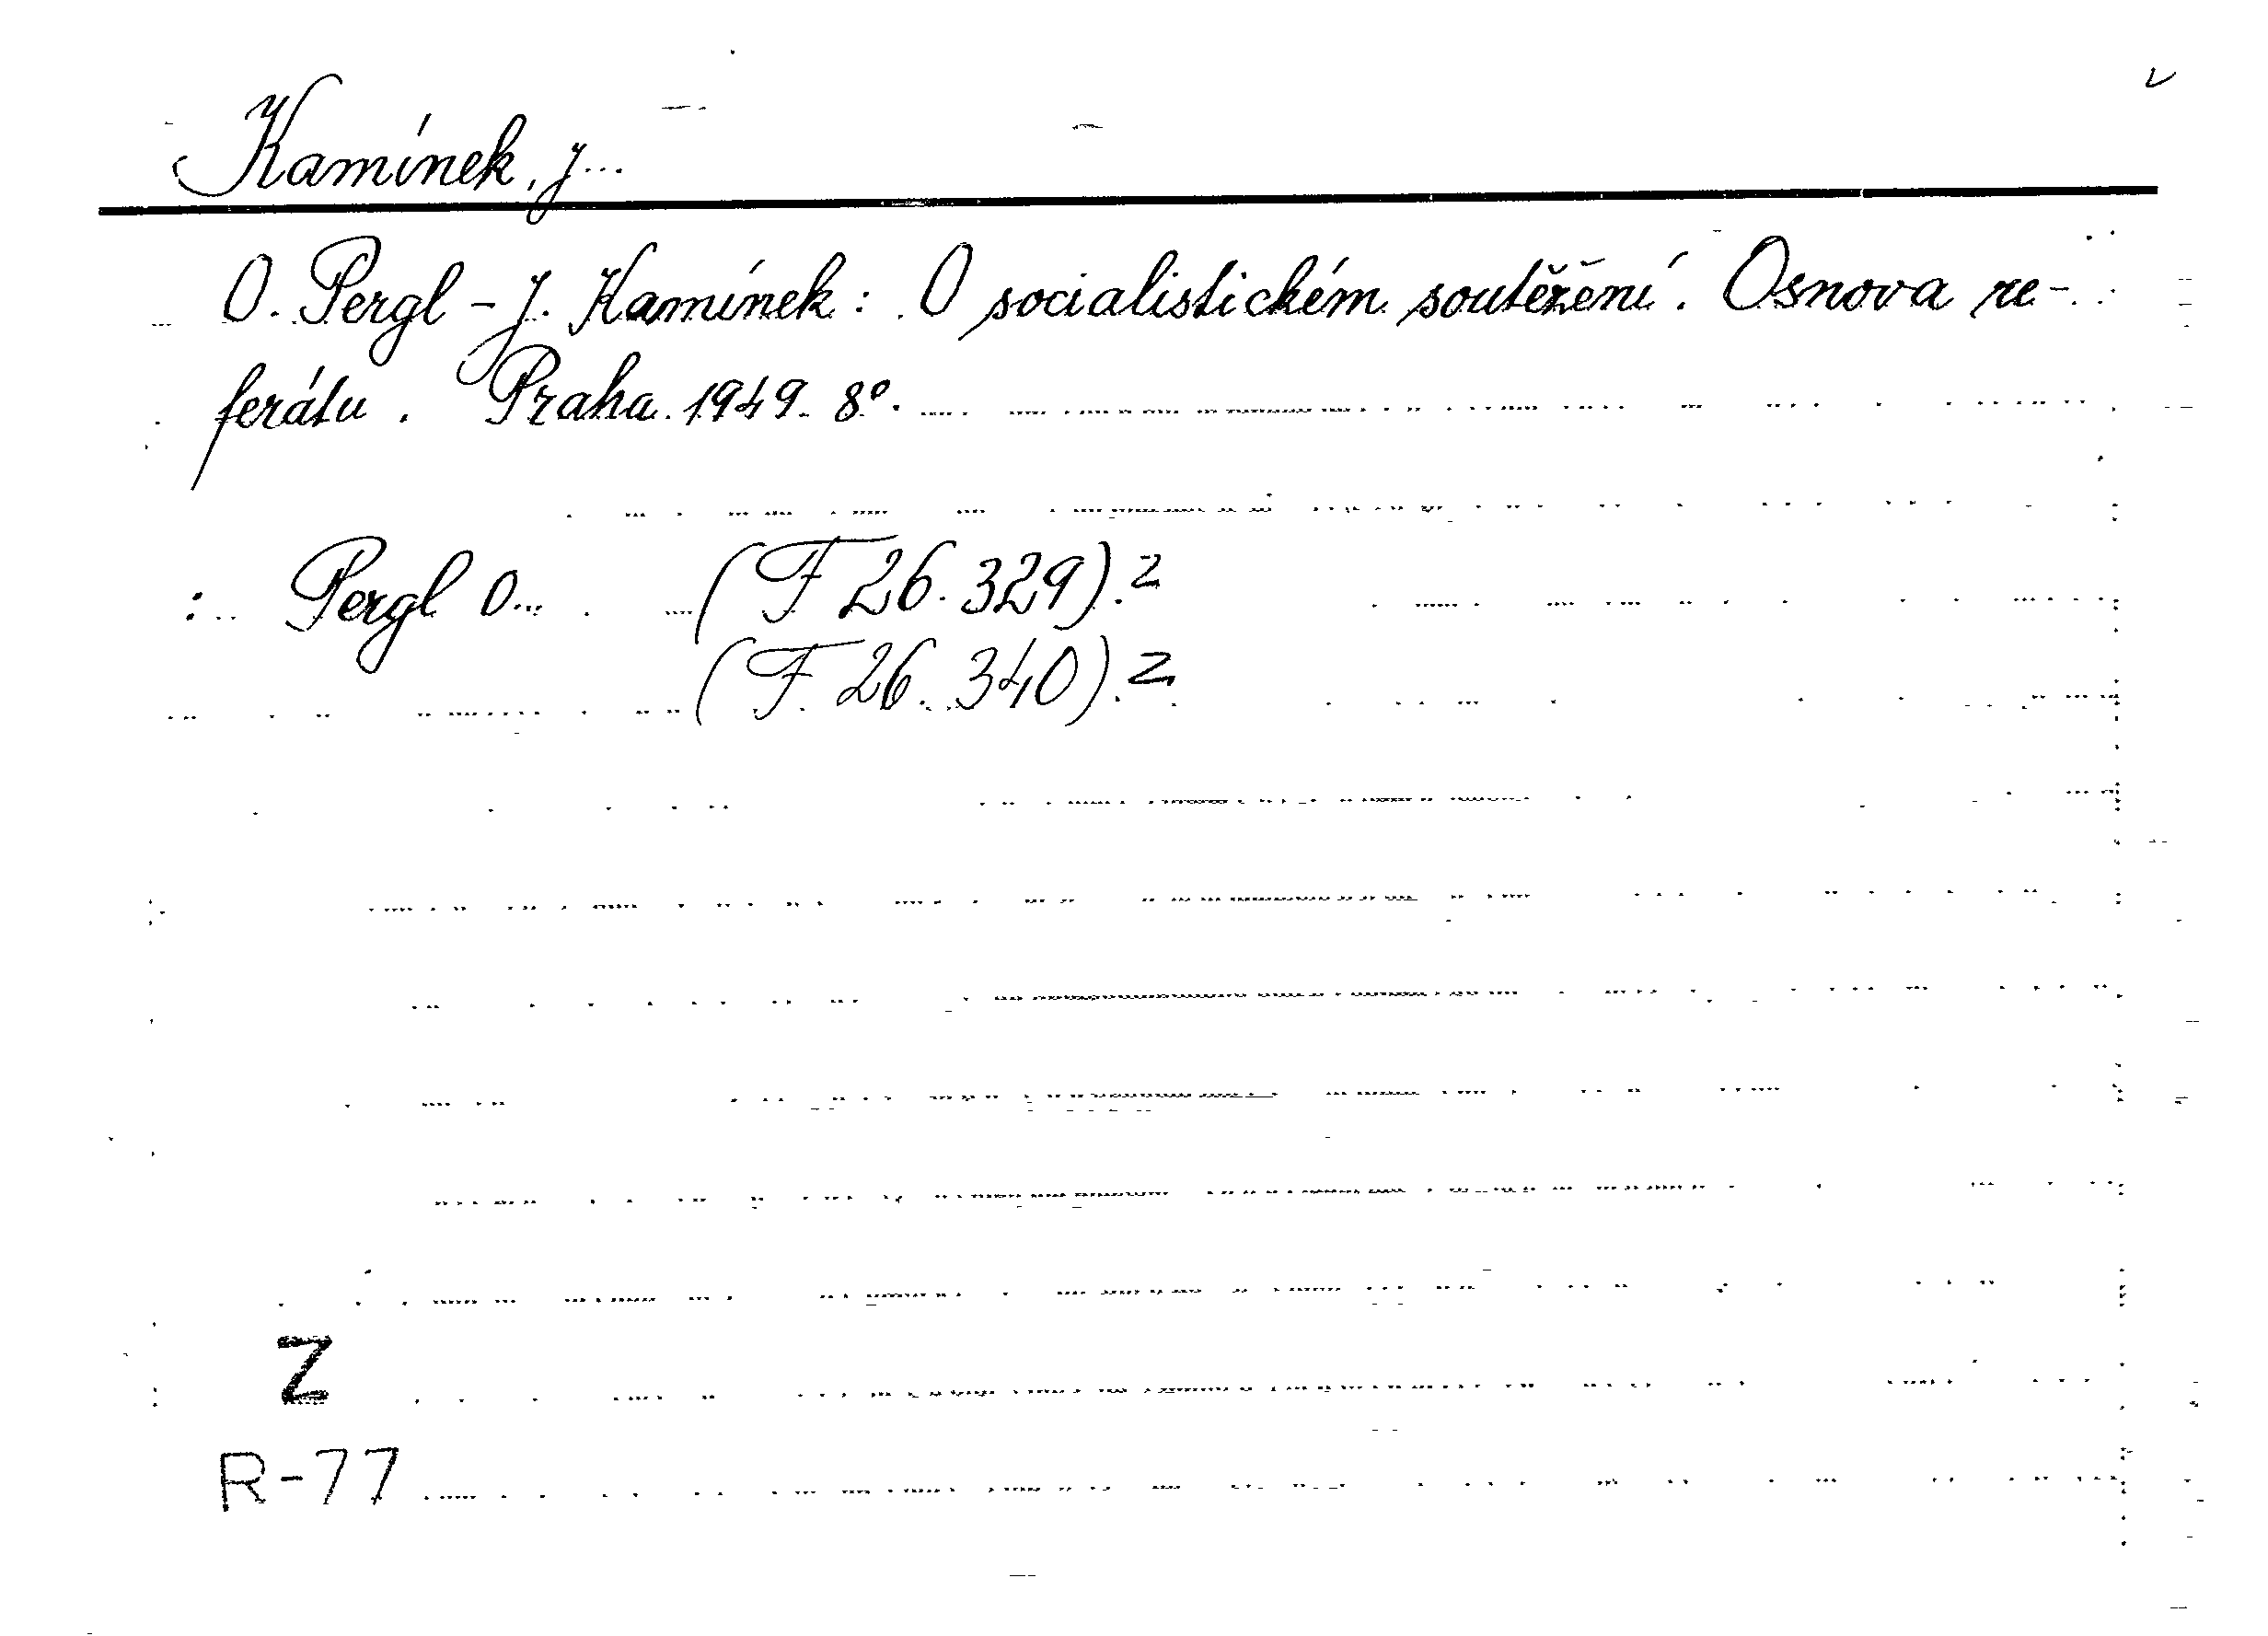 Kamínek, J...
O. Pergl - J. Kamínek: O socialistickém soutěžení. Osnova re-
ferátu. Praha 1949. 8°.
Pergl O... (F 26.329).z
(F 26.340).z
Z
R-77